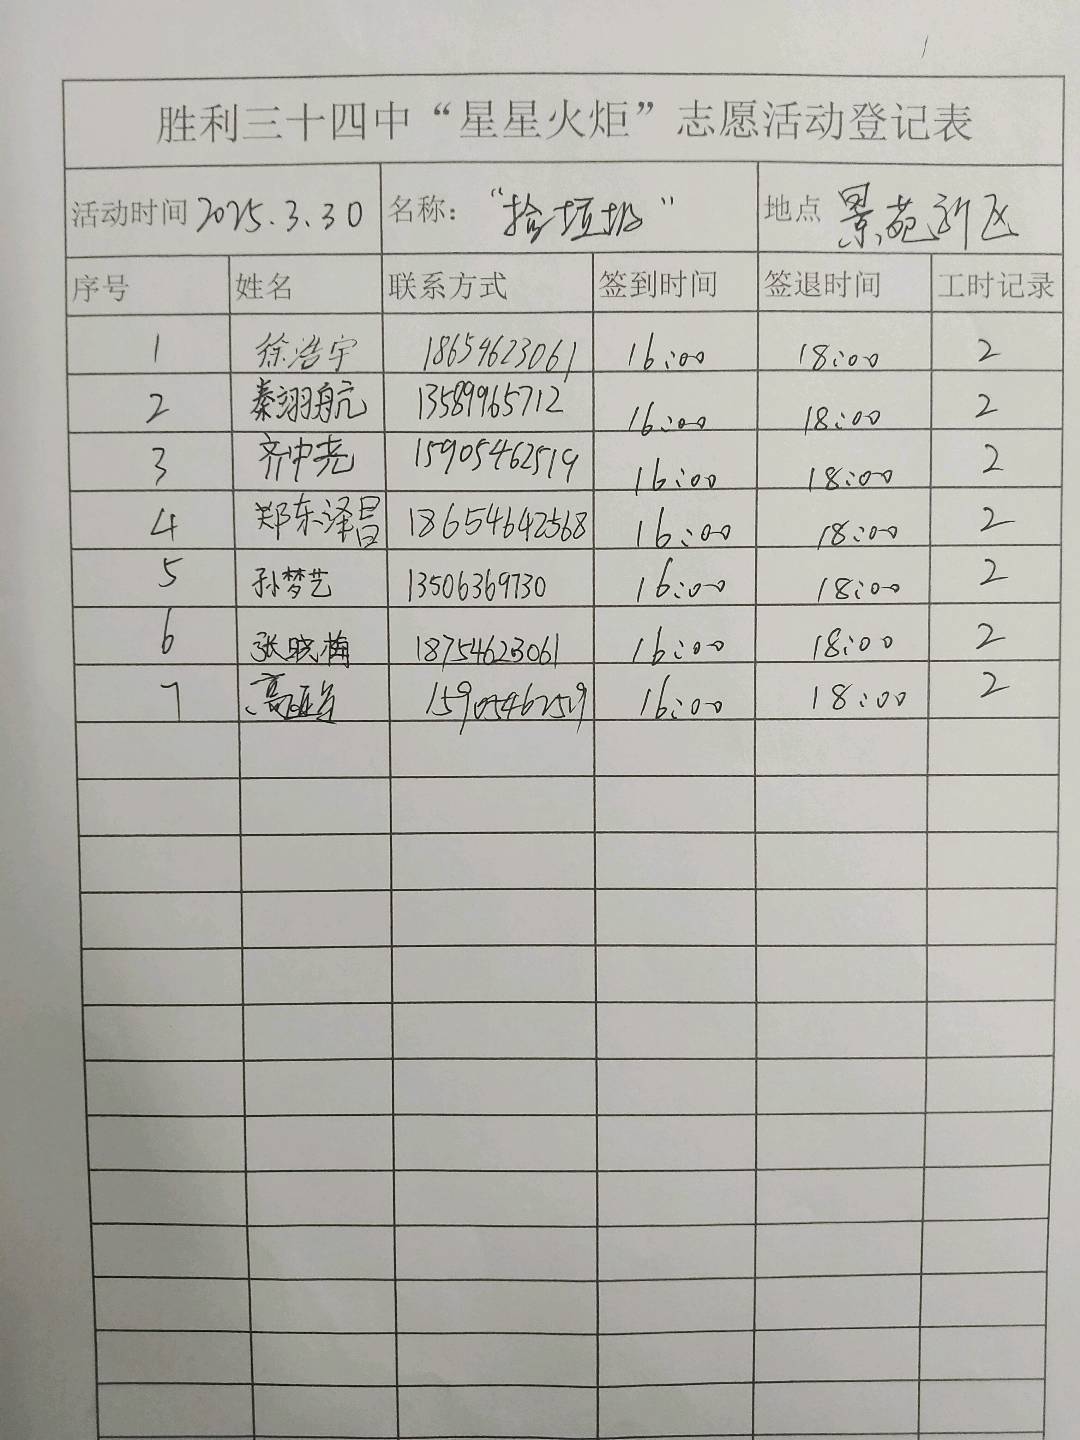 胜利三十四中“星星火炬”志愿活动登记表
活动时间 2025.3.30 名称： “拾垃圾” 地点 景苑新区
序号 姓名 联系方式 签到时间 签退时间 工时记录
1 徐浩宇 18654623061 16:00 18:00 2
2 秦翊航 13589965712 16:00 18:00 2
3 齐中尧 15905462519 16:00 18:00 2
4 郑东泽昌 18654642568 16:00 18:00 2
5 孙梦艺 13506369730 16:00 18:00 2
6 张晓梅 18754623061 16:00 18:00 2
7 15905462519 16:00 18:00 2